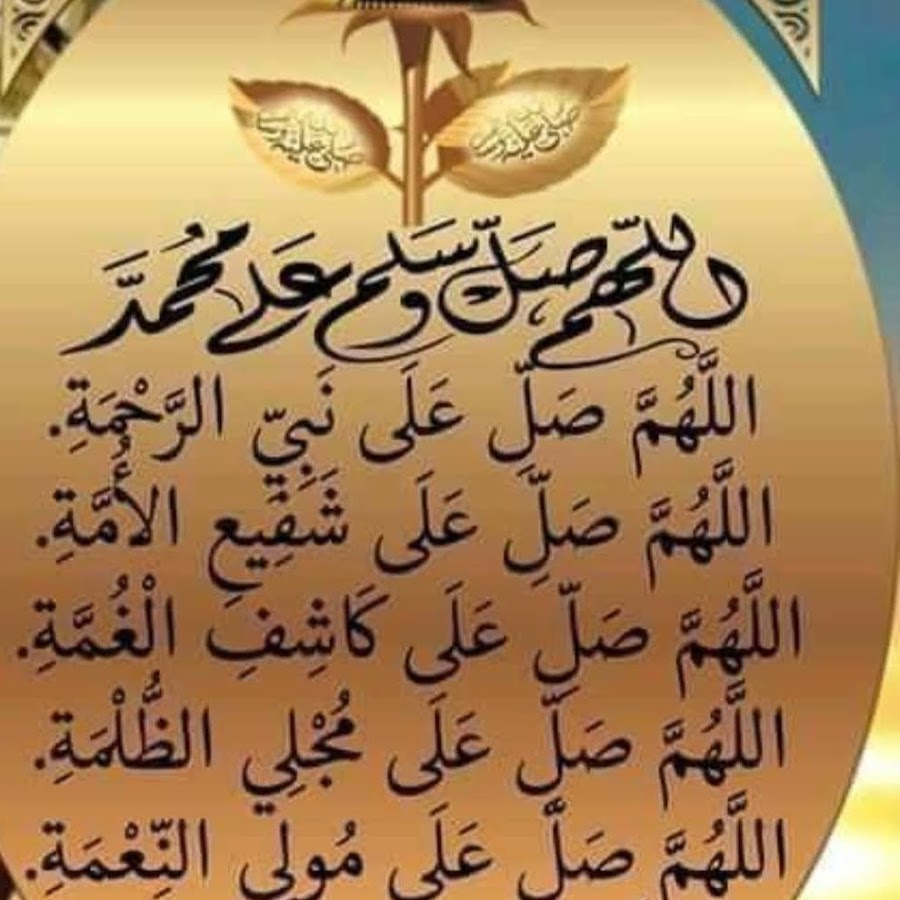 صلى الله عليه وسلم
صلى الله عليه وسلم
اللهم صل وسلم على محمد
اللَّهُمَّ صَلِّ عَلَى نَبِيِّ الرَّحْمَةِ.
اللَّهُمَّ صَلِّ عَلَى شَفِيعِ الأُمَّةِ.
اللَّهُمَّ صَلِّ عَلَى كَاشِفِ الْغُمَّةِ.
اللَّهُمَّ صَلِّ عَلَى مُجْلِي الظُّلْمَةِ.
اللَّهُمَّ صَلِّ عَلَى مُولِي النِّعْمَةِ.